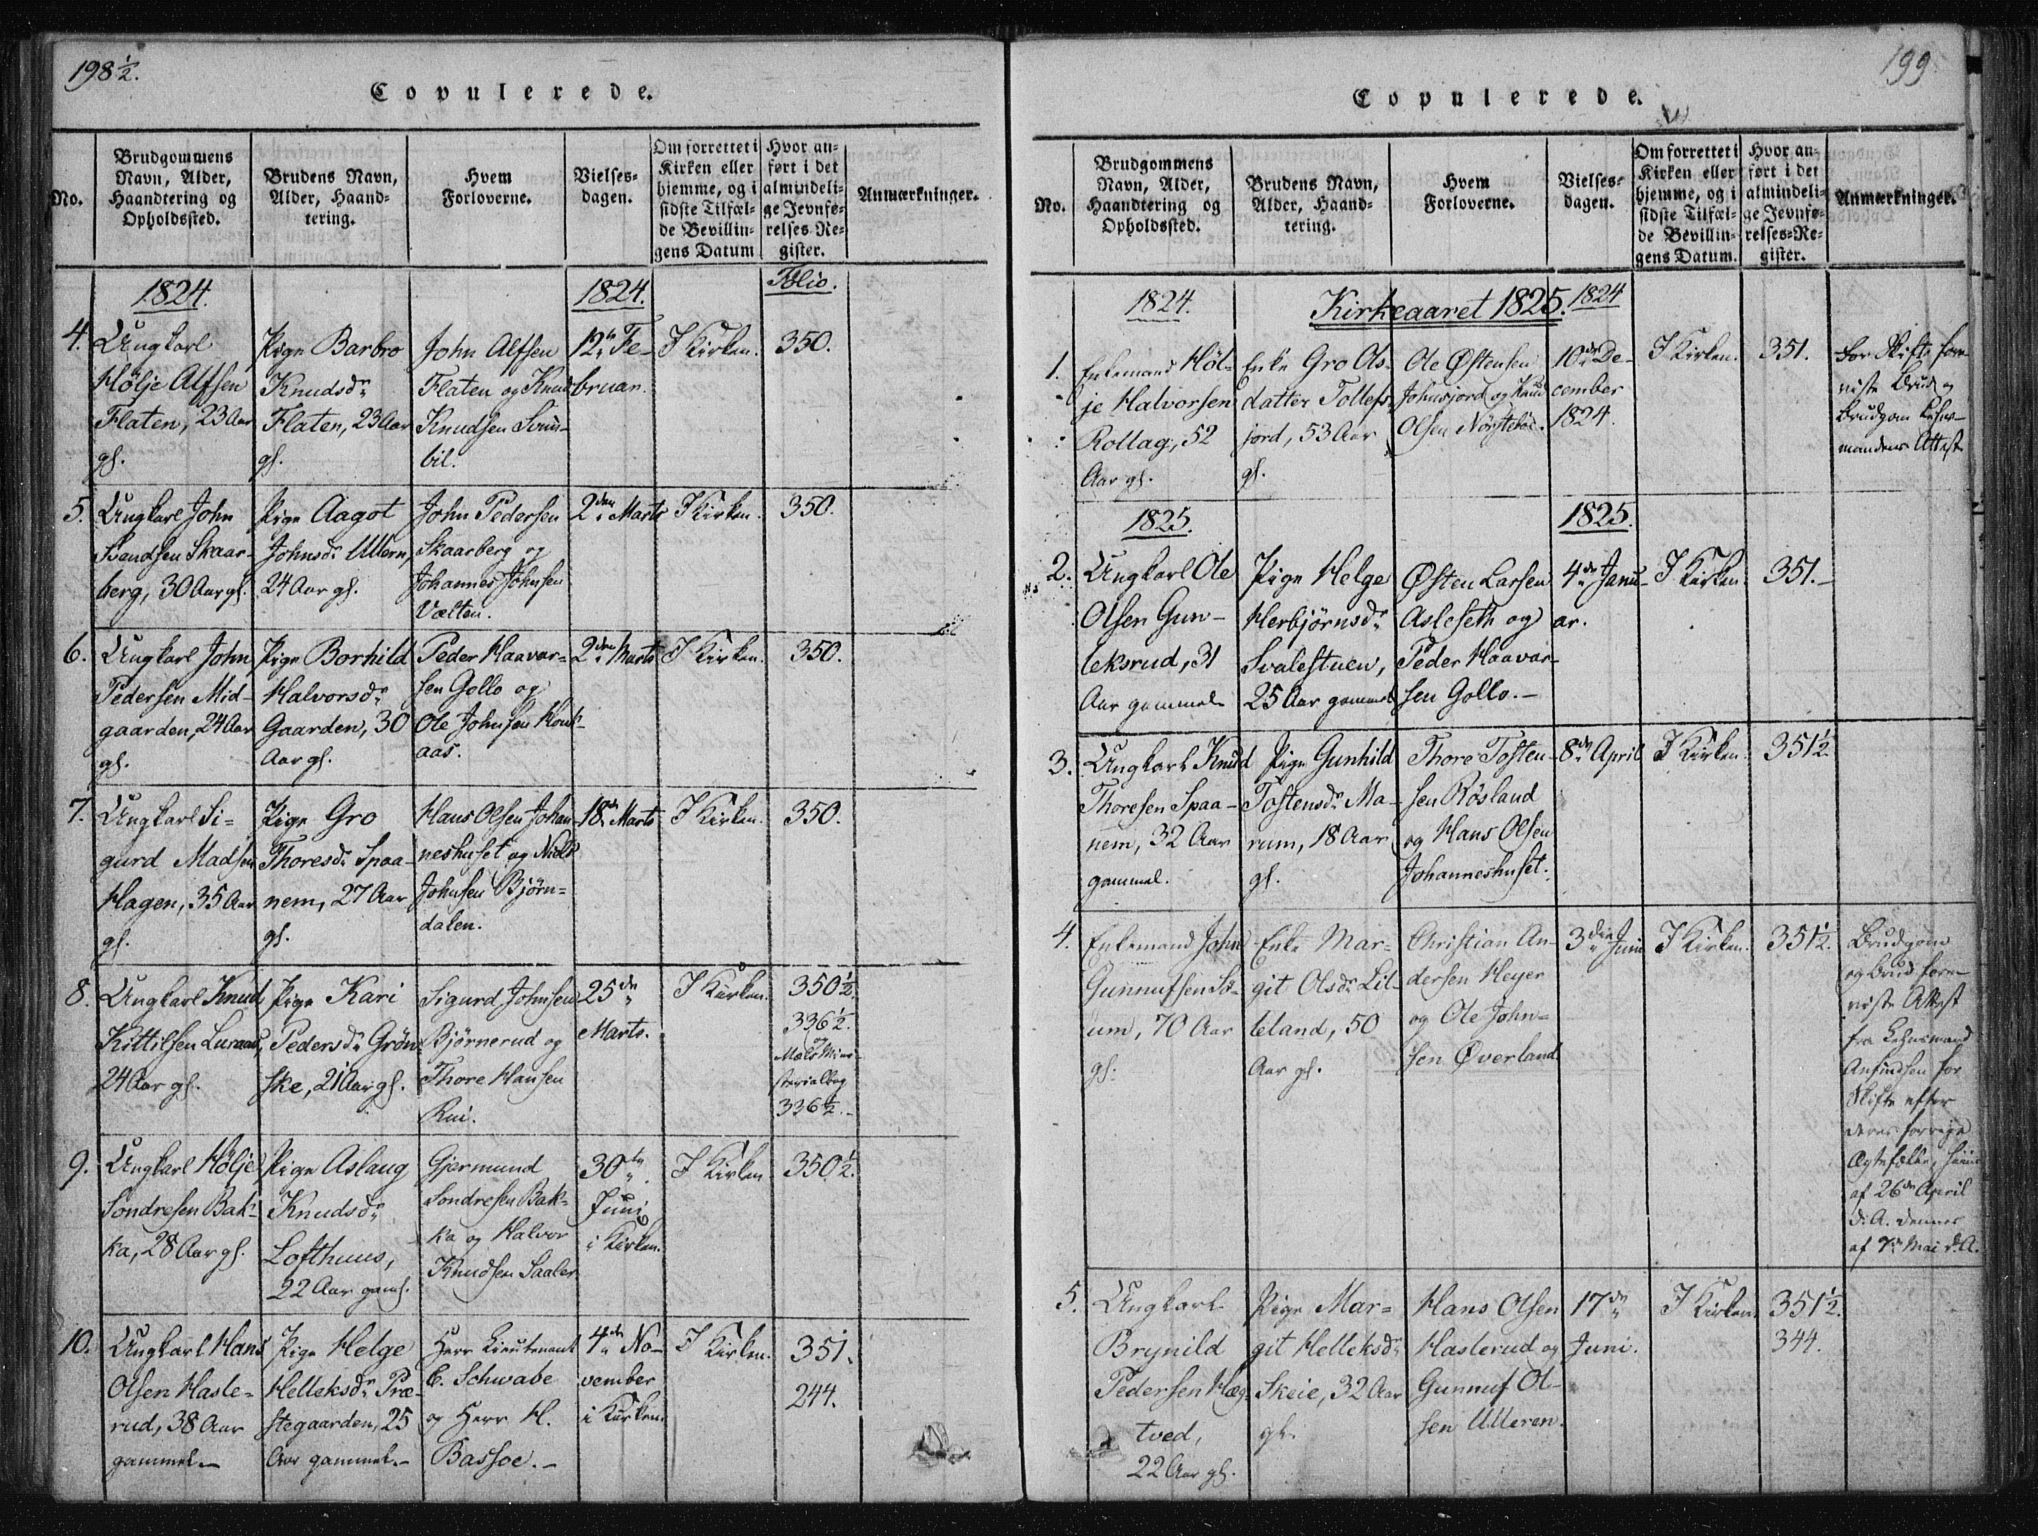 198½.
Copulerede.
No.
Brudgommens
Navn, Alder,
Haandtering og
Opholdssted.
Brudens Navn,
Alder, Haand-
tering.
Hvem
Forloverne.
Vielses-
dagen.
Om forrettet i
Kirken eller
hjemme, og i
sidste Tilfæl-
de Bevillin-
gens Datum
Hvor an-
ført i det
almindeli-
ge Jevnfø-
relses-Re-
gister.
Anmærkninger.
1824.
1824.
Folio.
4.
Ungkarl
Hølje Alfsen
Flaten, 23 Aar
gl.
Pige Barbro
Knudsdr
Flaten, 23 Aar
gl.
John Alfsen
Flaten og Knud
Knudsen
bil.
12te Fe-
bruar.
I Kirken.
350.
5.
Ungkarl John
Svendsen Skaar-
berg, 30 Aar gl.
Pige Aagot
Johnsdr Ullern,
24 Aar gl.
John Pedersen
Skaarberg og
Johannes Johnsen
Vælten.
2den Marts
I Kirken.
350.
6.
Ungkarl John
Pedersen Mid-
gaarden, 24 Aar
gl.
Pige Borhild
Halvorsdr
Gaarden, 30
Aar gl.
Peder Haavar-
sen Gollo og
Ole Johnsen
aas.
2den Marts
I Kirken.
350.
7.
Ungkarl Si-
gurd Madsen
Hagen, 35 Aar
gl.
Pige Gro
Thoresdr Spaa-
nem, 27 Aar
gl.
Hans Olsen Johan-
neshuset og Niels
Johnsen Bjørn-
dalen.
18de Marts
I Kirken.
350.
8.
Ungkarl Knud
Kittilsen Luraas,
24 Aar gl.
Pige Kari
Pedersdr Grøn
ske, 21 Aar gl.
Sigurd Johnsen
Bjørnerud og
Thore Hansen
Rui.
25de
Marts.
I Kirken.
350½.
336½.
og
Mæls Mini-
sterialbog
336½.
9.
Ungkarl Hølje
Sondresen Bak-
ka, 28 Aar gl.
Pige Aslaug
Knudsdr
Lofthuus,
22 Aar gaml.
Gjermund
Sondresen Bak-
ka og Halvor
Knudsen Saaler
30te
Juni
i Kirken.
I Kirken
350½.
10.
Ungkarl Hans
Olsen Hasle-
rud, 38 Aar
gammel.
Pige Helge
Helleksdr Præ-
stegaarden, 25
Aar gammel.
Herr Lieutenant
E. Schwabe
og Herr H.
Bassoe.
4de No-
vember
i Kirken
I Kirken.
351.
244.
199
Copulerede.
No.
Brudgommens
Navn, Alder,
Haandtering og
Opholdssted.
Brudens Navn,
Alder, Haand-
tering.
Hvem
Forloverne.
Vielses-
dagen.
Om forrettet i
Kirken eller
hjemme, og i
sidste Tilfæl-
de Bevillin-
gens Datum.
Hvor an-
ført i det
almindeli-
ge Jevnfø-
relses-Re-
gister.
Anmærkninger.
1824.
Kirkeaaret 1825.
1824
1.
Enkemand Høl-
je Halvorsen
Rollag, 52
Aar gl.
Enke Gro Ols-
datter Tollefs-
jord, 53 Aar
gl.
Ole Østensen
Johnsjord og Knud
Olsen Nørstebø.
10de De-
cember
1824.
I Kirken.
351.
For Skifte frem-
viste Brud og
Brudgom Lehns-
mandens Attest
1825.
1825.
2.
Ungkarl Ole
Olsen Gun-
leksrud, 31
Aar gammel
Pige Helge
Herbjørnsdr
Svalestuen,
25 Aar gammel
Østen Larsen
Asleseth og
Peder Haavar-
sen Gollo.
4de Janu-
ar.
I Kirken.
351.
3.
Ungkarl Knud
Thoresen Spaa-
nem, 32 Aar
gammel.
Pige Gunhild
Tostensdr Ma-
rum, 18 Aar
gl.
Thore Tosten-
sen Røsland
og Hans Olsen
Johanneshuset.
8de April
I Kirken.
351½.
4.
Enkemand John
Gunnufsen
um, 70 Aar
gl.
Enke Mar-
git Olsdr Lil-
leland, 50
Aar gl.
Christian An-
dersen Heyer
og Ole John-
sen Øverland
3die Juni
I Kirken.
351½.
Brudgom
og Brud frem-
viste Attest
fra Lehnsmand
Anfindsen for
Skifte efter
deres forrige
Ægtefælle,
af 26de April
d. A. dennes
af 7de Mai d. A.
5.
Ungkarl
Brynild
Pedersen Hæg-
tved,
22 Aar gl.
Pige Mar-
git Helleksdr
Skeie, 32 Aar
gl.
Hans Olsen
Haslerud og
Gunnuf Ol-
sen Ulleren.
17de
Juni.
I Kirken
351½.
344.